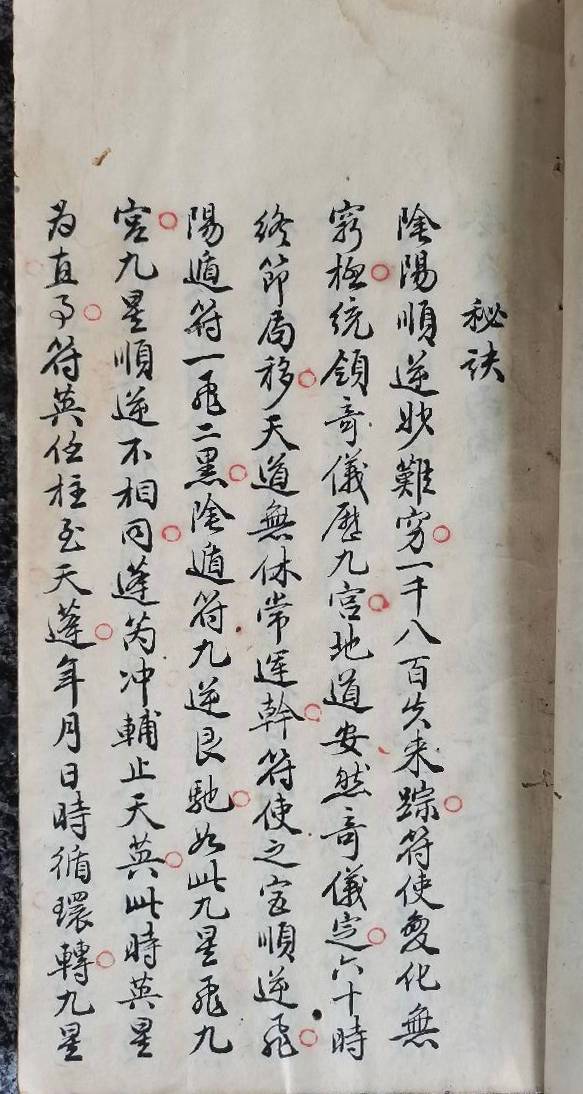 秘訣
陰陽順逆妙難穷一千八百失来踪符使变化無
窮極統領奇儀歷九宫地道安然奇儀定六十時
終節局移天道無休常運幹符使之宫順逆飛
陽遁符一飛二黑陰遁符九逆艮馳如此九星飛九
宫九星順逆不相同蓬芮冲輔止天英此時英星
为直事符英任柱至天蓬年月日時循環轉九星